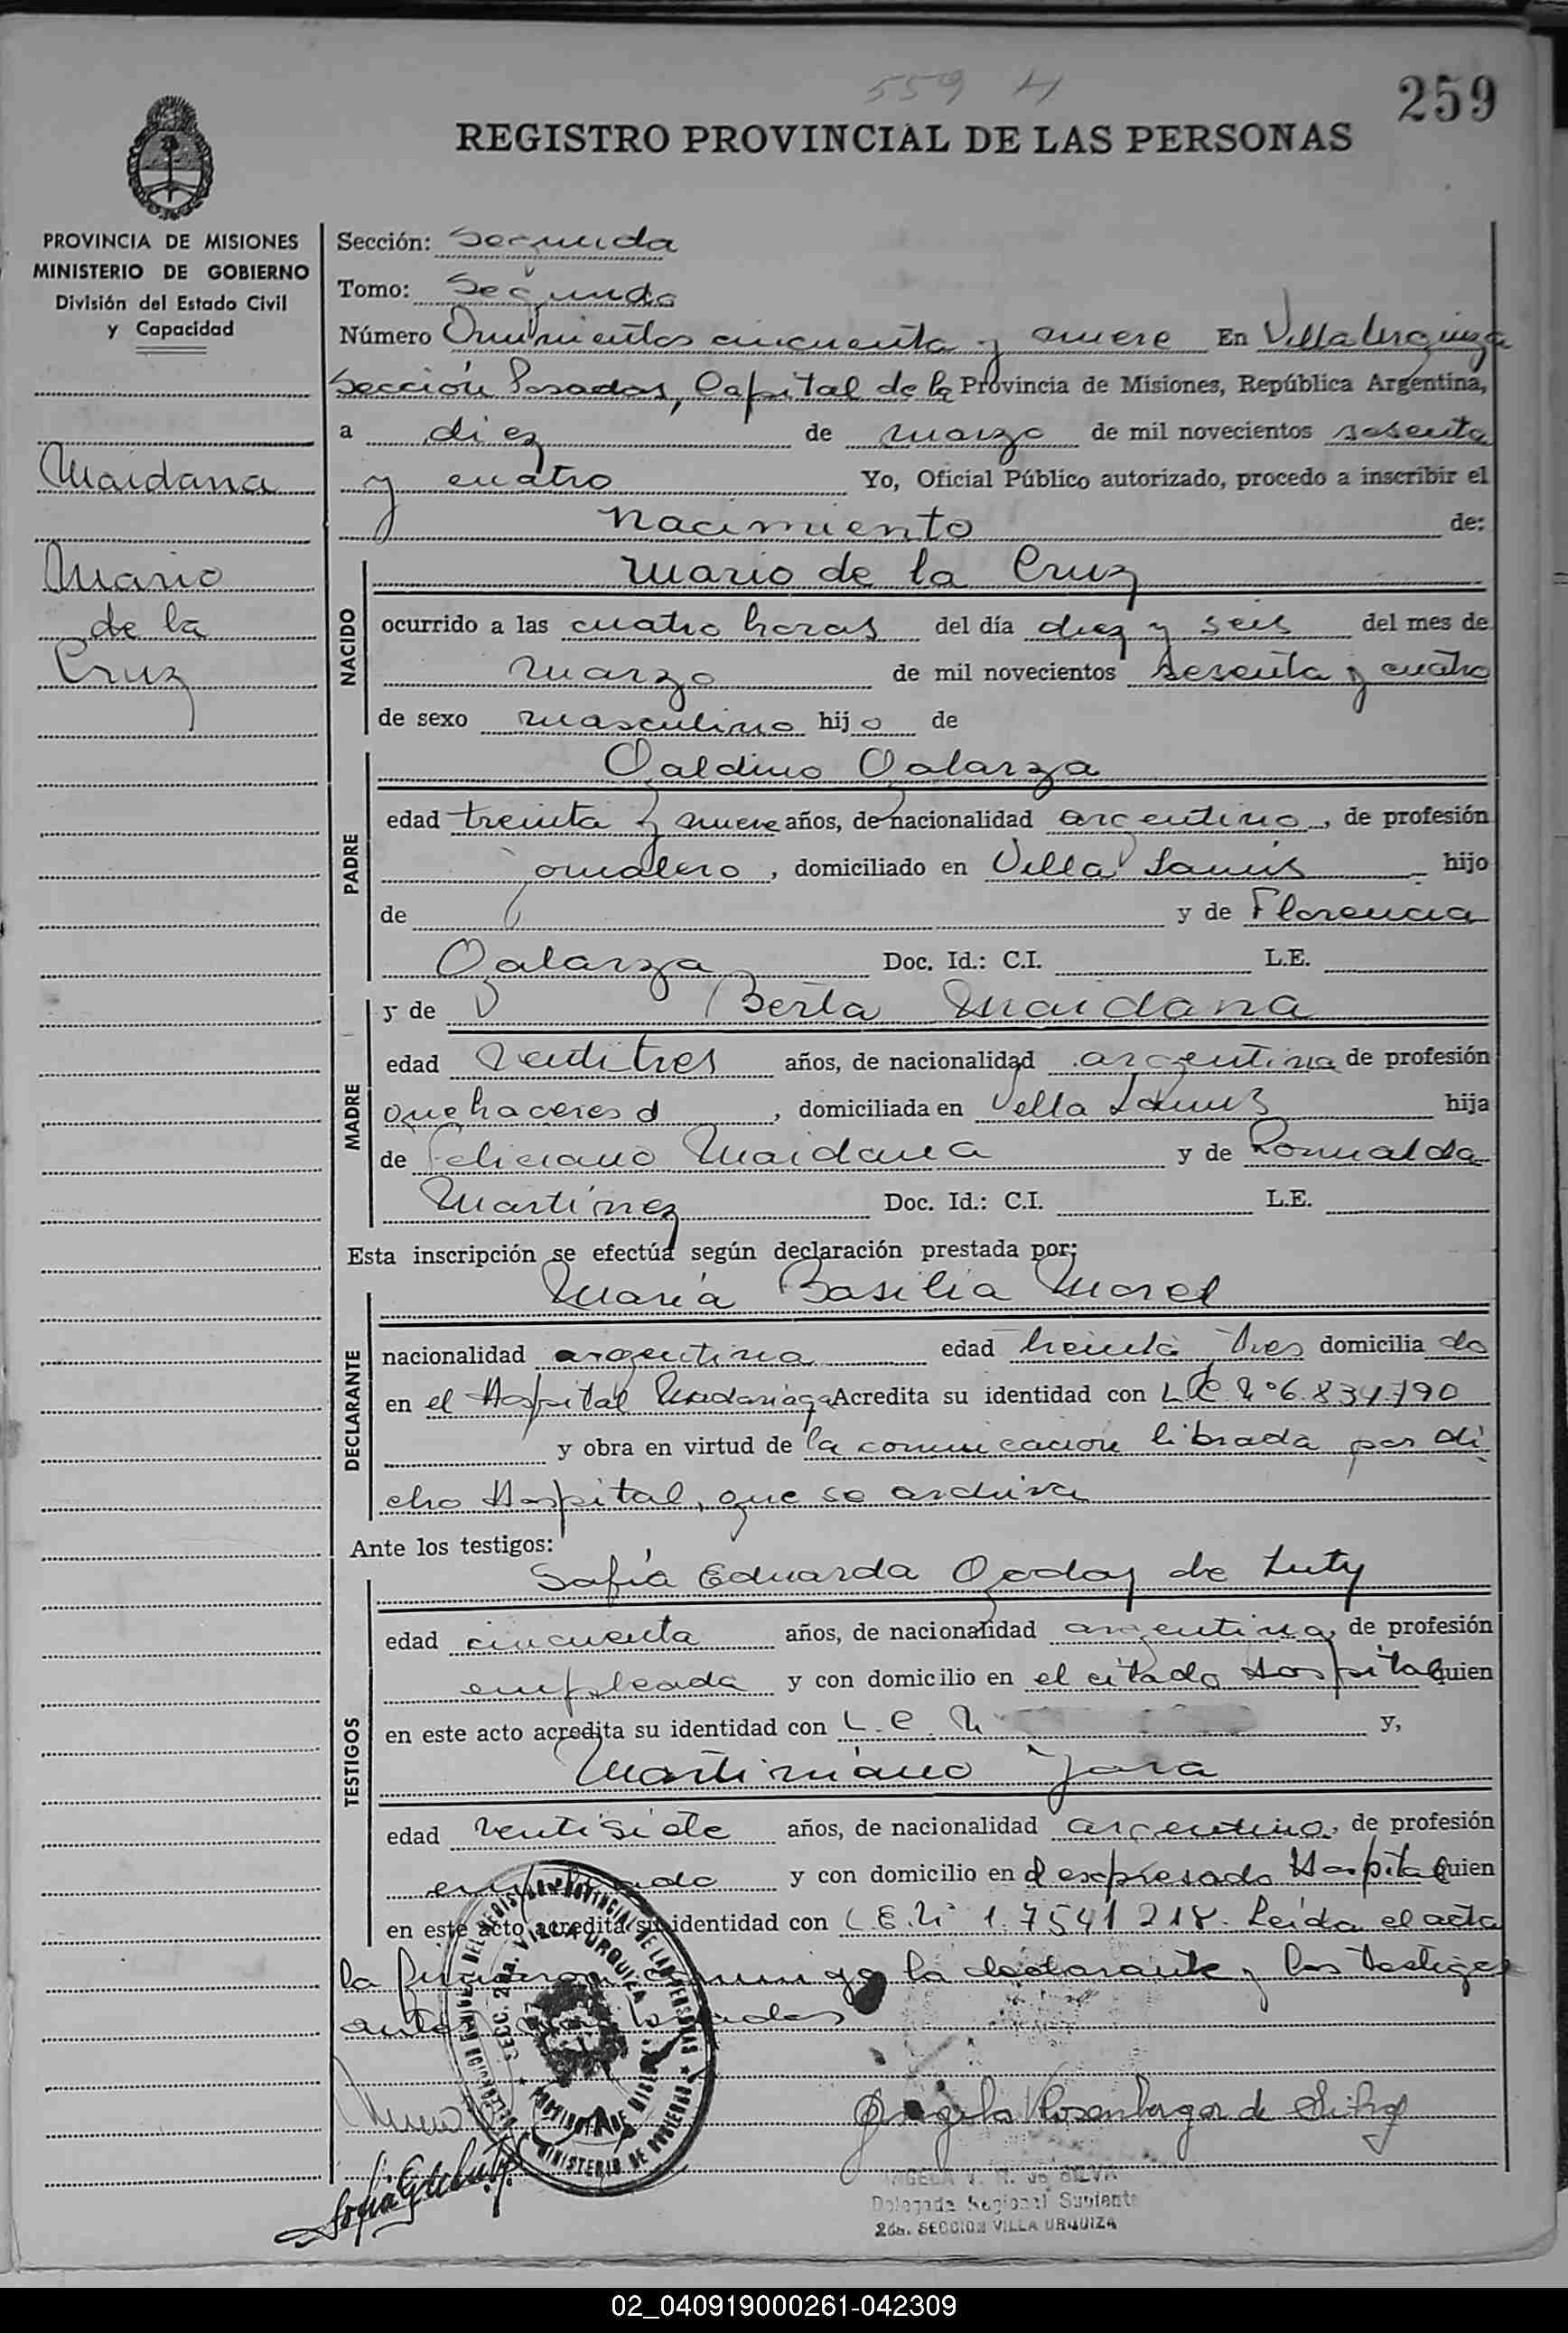 559 H
259
REGISTRO PROVINCIAL DE LAS PERSONAS
PROVINCIA DE MISIONES
MINISTERIO DE GOBIERNO
División del Estado Civil
y Capacidad
Maidana
Mario
de la
Cruz
Sección: Segunda
Tomo: Segundo
Número Quinientos cincuenta y nueve En Villa Urquiza
Sección Posadas, Capital de la Provincia de Misiones, República Argentina,
a diez de marzo de mil novecientos sesenta
y cuatro Yo, Oficial Público autorizado, procedo a inscribir el
nacimiento de:
NACIDO
Mario de la Cruz
ocurrido a las cuatro horas del día diez y seis del mes de
marzo de mil novecientos sesenta y cuatro
de sexo masculino hijo de
PADRE
Galdino Galarza
edad treinta y nueve años, de nacionalidad argentino, de profesión
jornalero, domiciliado en Villa Lanús hijo
de y de Florencia
Galarza Doc. Id.: C.I. L.E.
MADRE
y de Berta Maidana
edad ventitres años, de nacionalidad argentina de profesión
quehaceres d, domiciliada en Villa Lanus hija
de Feliciano Maidana y de Romualda
Martínez Doc. Id.: C.I. L.E.
Esta inscripción se efectúa según declaración prestada por:
DECLARANTE
María Basilia Morel
nacionalidad argentina edad treinta y tres domicilia da
en el Hospital Madariaga Acredita su identidad con L.C. Nº 6.834.790
y obra en virtud de la comunicación librada por di
cho Hospital, que se archiva
Ante los testigos:
TESTIGOS
Sofía Eduarda Godoy de Luty
edad cincuenta años, de nacionalidad argentina, de profesión
empleada y con domicilio en el citado Hospital quien
en este acto acredita su identidad con L.C. N y,
Martiniano Jara
edad ventisiete años, de nacionalidad argentino, de profesión
empleado y con domicilio en el expresado Hospital quien
en este acto acredita su identidad con L.E. Nº 1.7541 218. Leída el acta
la firmaron conmigo la declarante y los testigos
antes
DELEGACION REGIONAL DEL REGISTRO PROVINCIAL DE LAS PERSONAS
SECC. 2da. VILLA URQUIZA
PROVINCIA DE MISIONES
MINISTERIO DE GOBIERNO
Angela V Rosenberger de Silva
Sofia G de Luty
ANGELA V. R. de SILVA
Delegada Regional Suplente
2da. SECCION VILLA URQUIZA
02_040919000261-042309